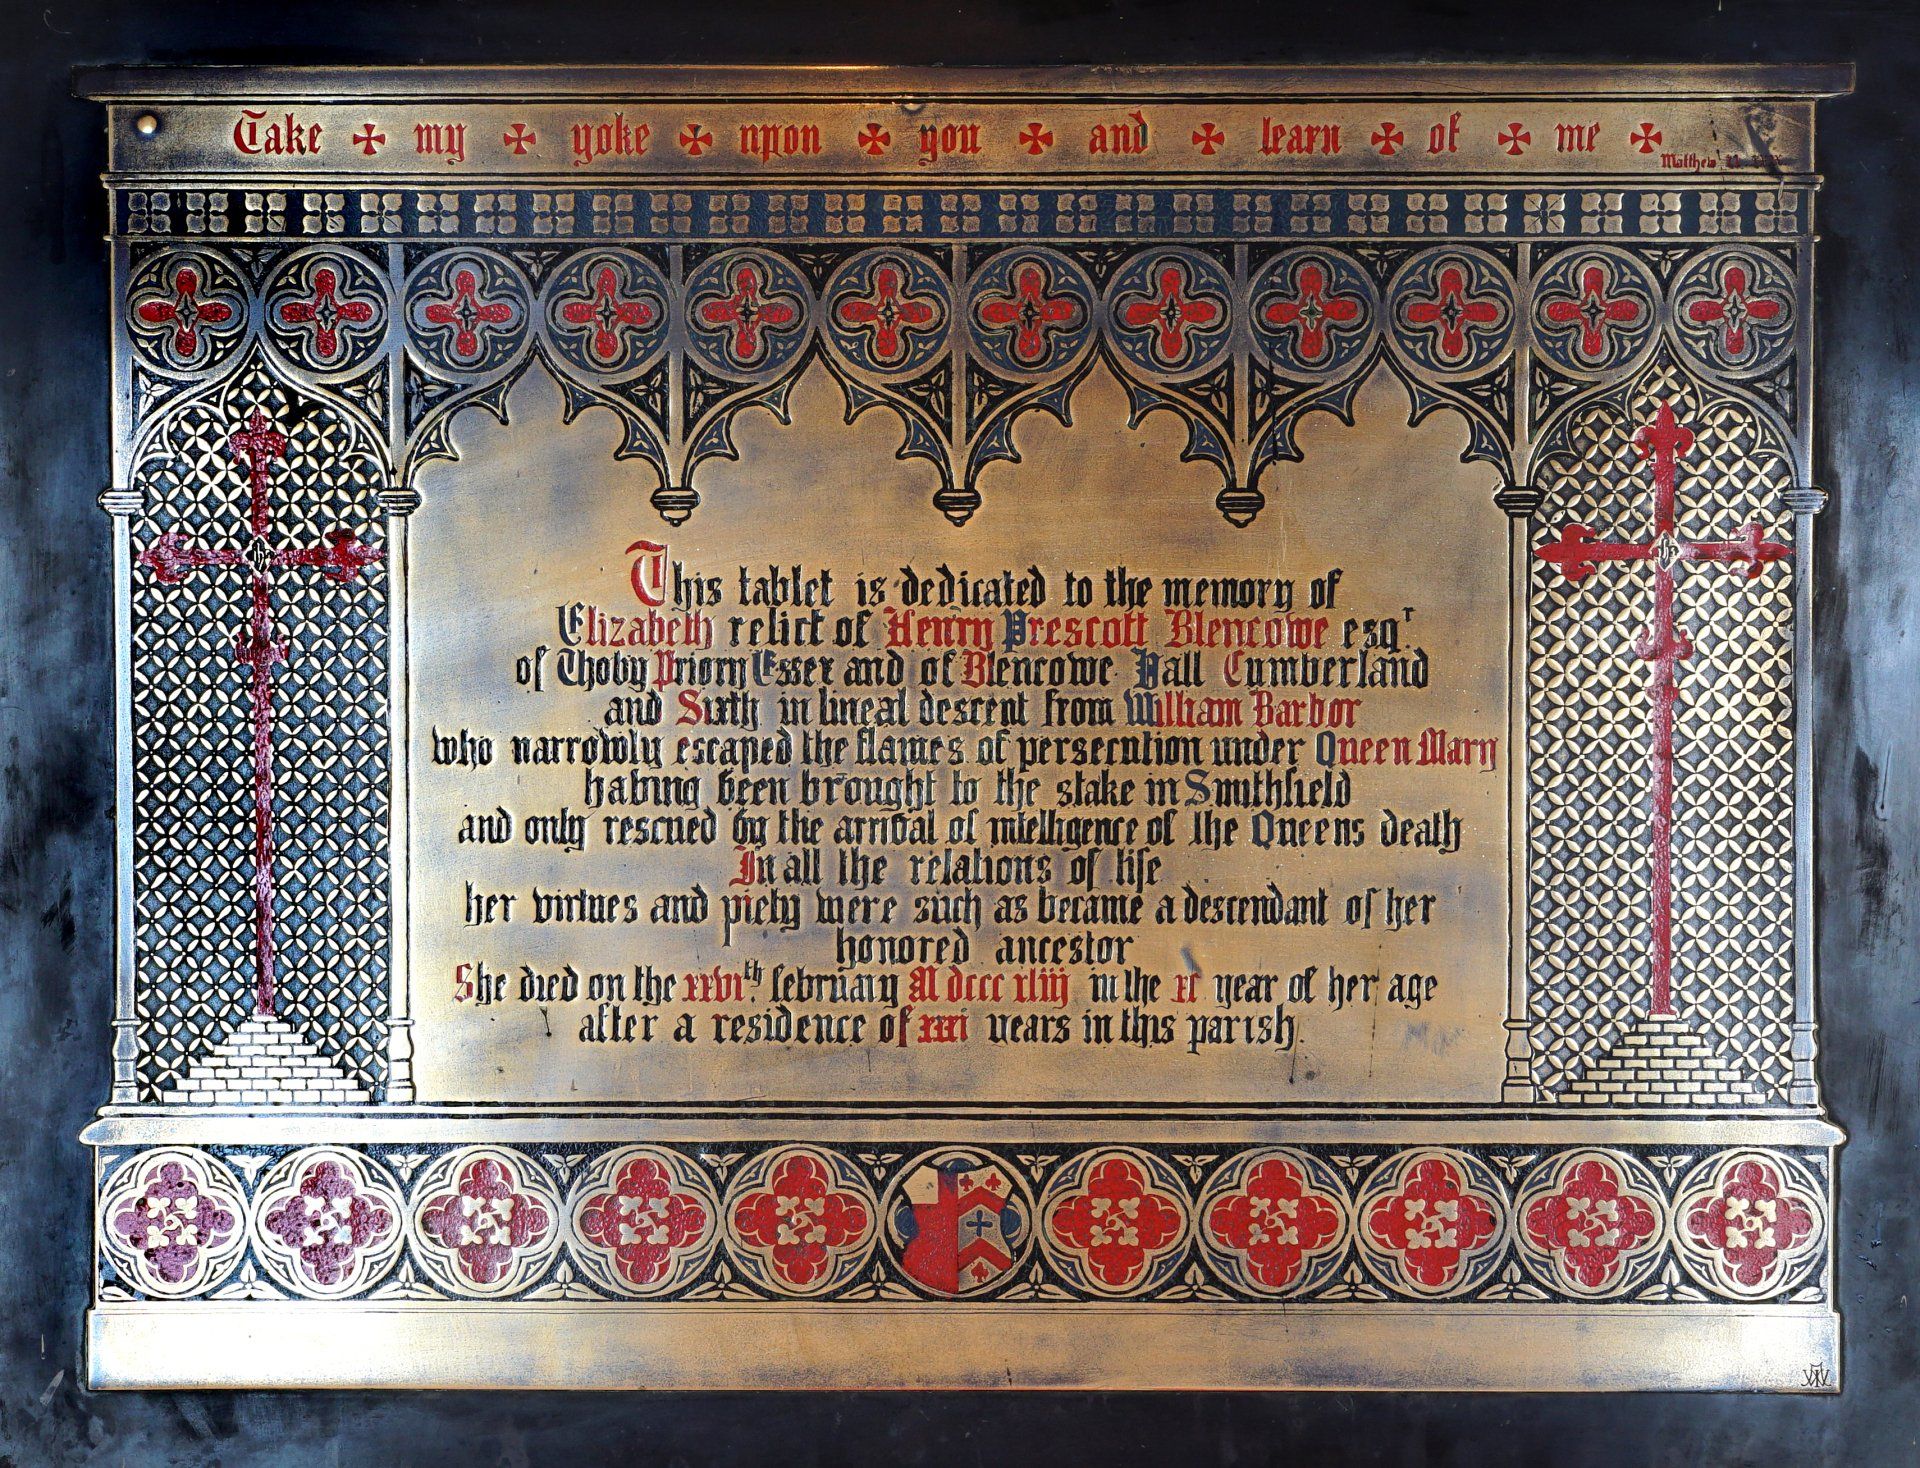 Take ✠ my ✠ yoke ✠ upon ✠ you ✠ and ✠ learn ✠ of ✠ me ✠
Matthew
This tablet is dedicated to the memory of
Elizabeth relict of Henry Prescott Blencowe esqr.
of Thoby Priory Essex and of Blencowe Hall Cumberland
and Sixth in lineal descent from William Barbor
who narrowly escaped the flames of persecution under Queen Mary
having been brought to the stake in Smithfield
and only rescued by the arrival of intelligence of the Queens death
In all the relations of life
her virtues and piety were such as became a descendant of her
honored ancestor
She died on the xxvith. february M dccc xliij in the xc year of her age
after a residence of xxxi years in this parish.